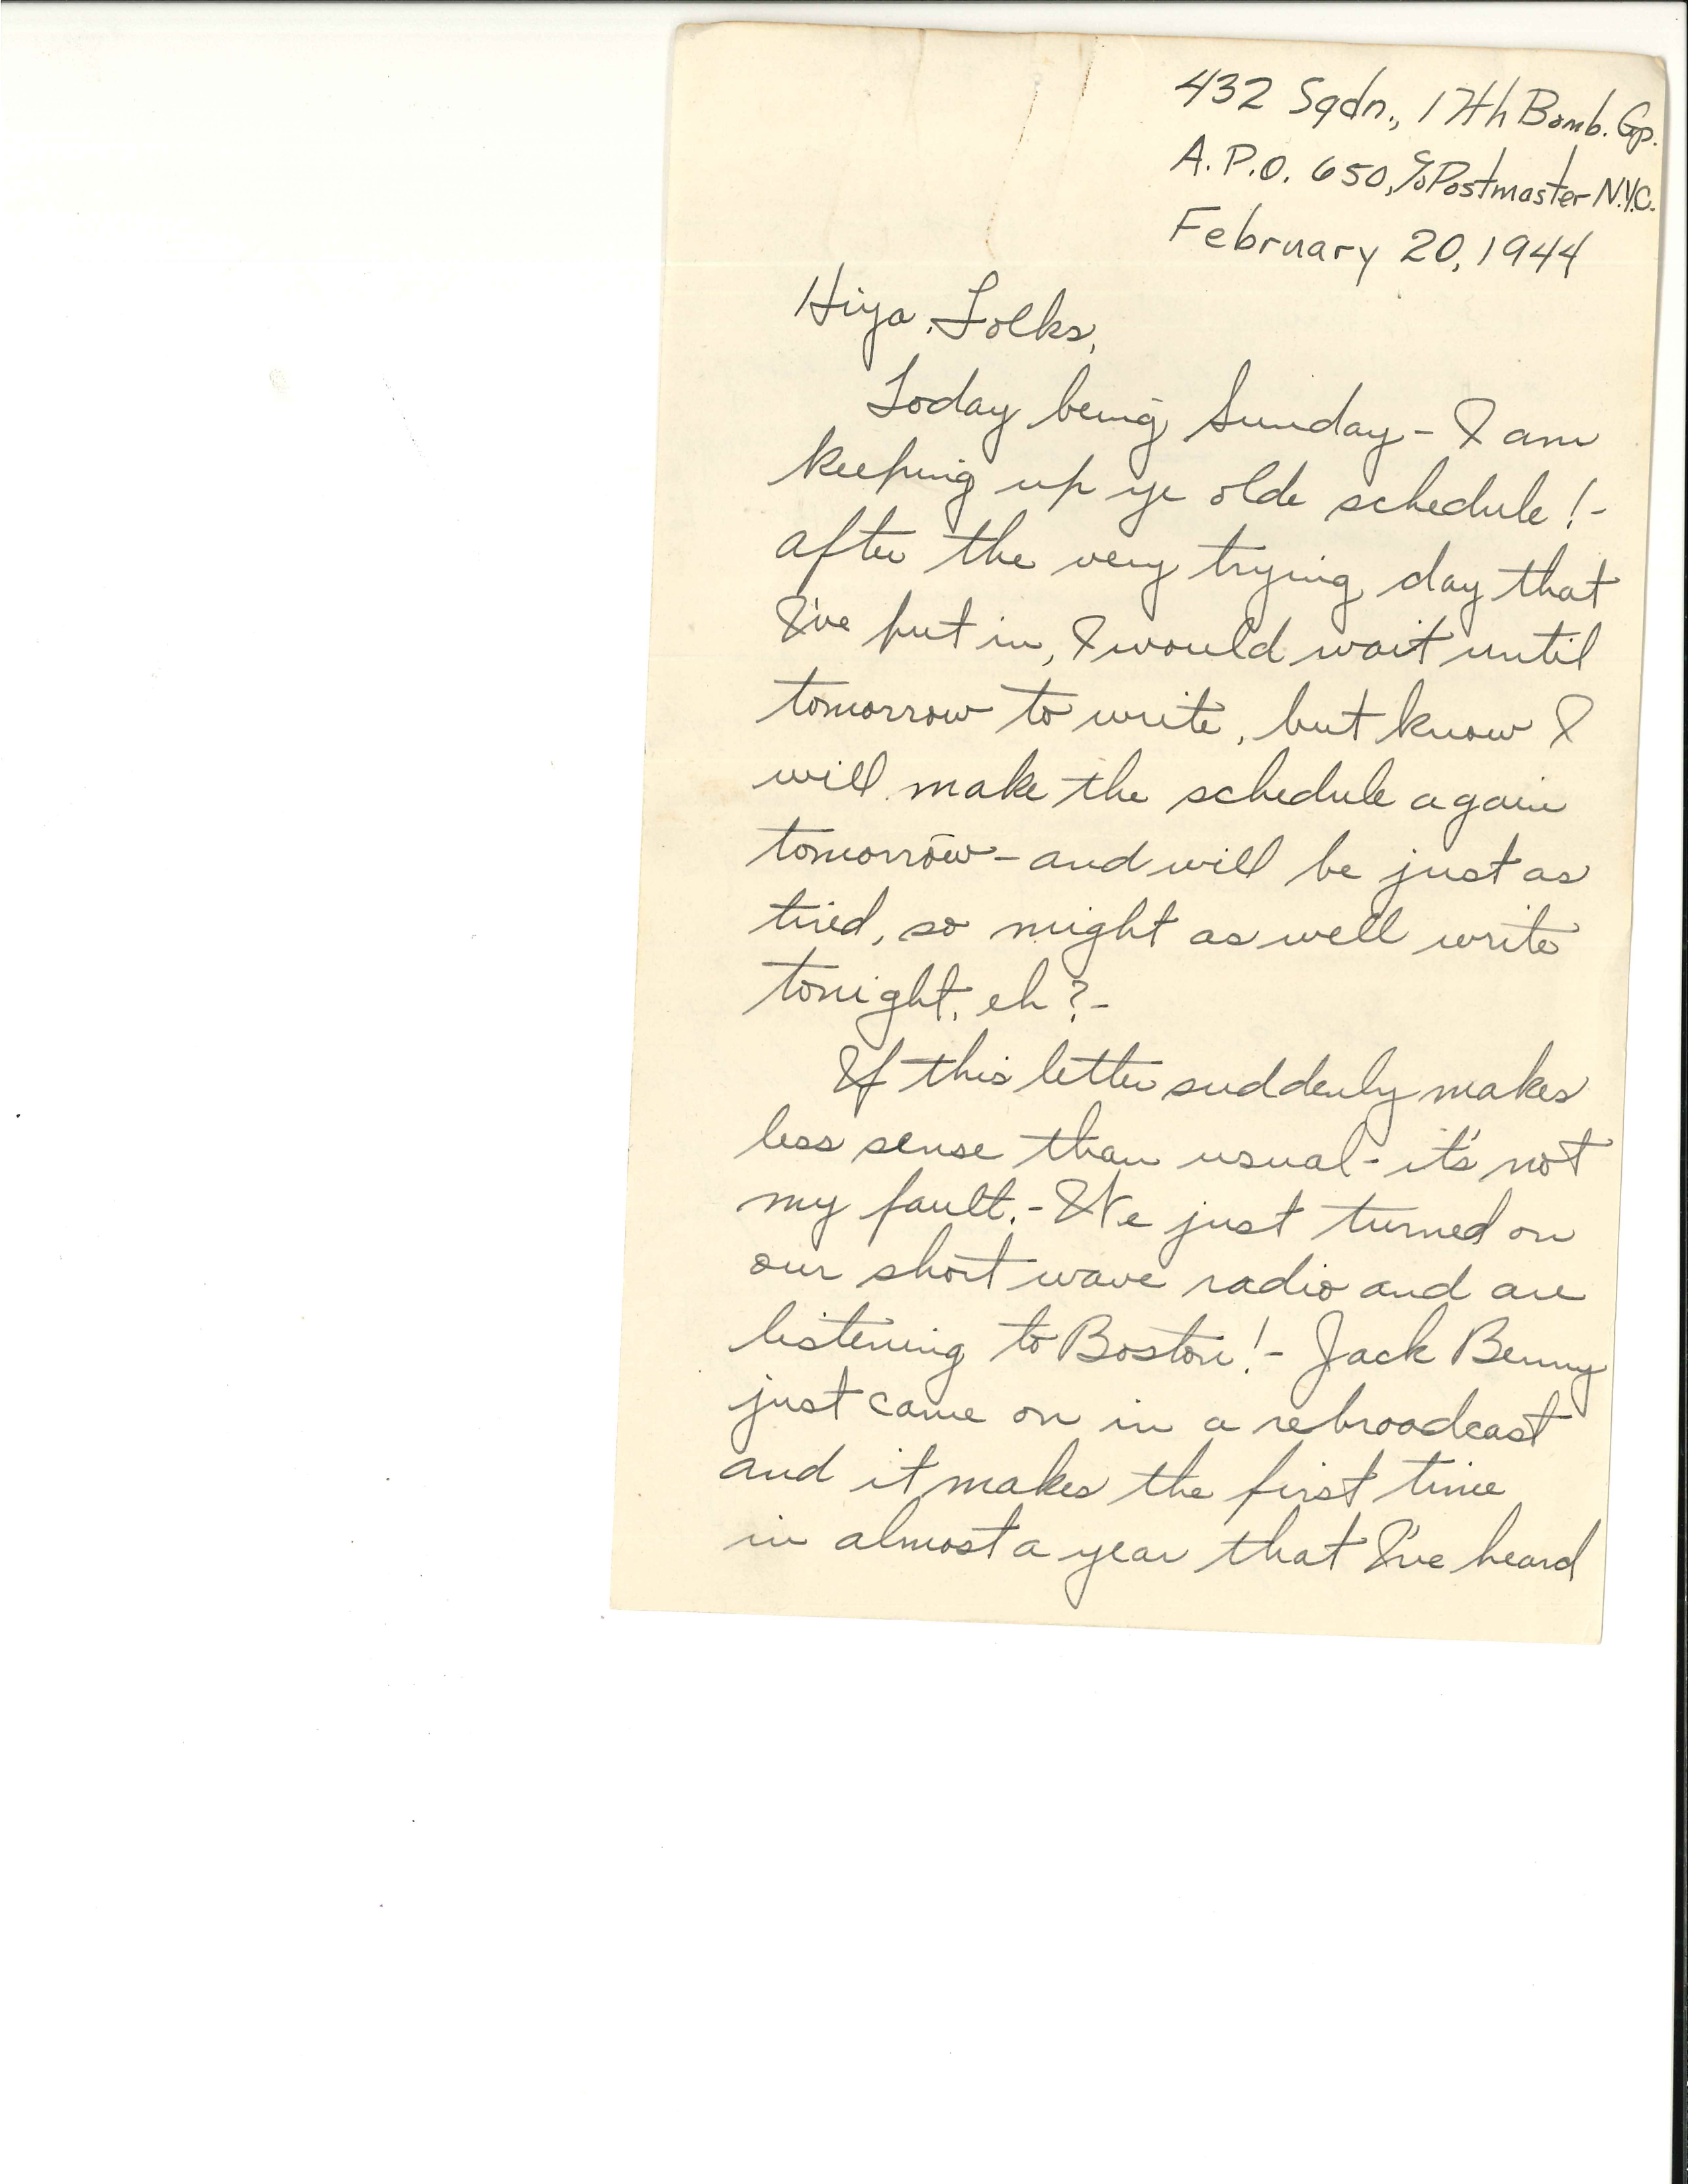 432 Sqdn., 17th Bomb. Gp.
A.P.O. 650, c/o Postmaster N.Y.C.
February 20, 1944
Hiya, Folks,
Today being Sunday - I am
keeping up ye olde schedule! -
after the very trying day that
I've put in, I would wait until
tomorrow to write, but know I
will make the schedule again
tomorrow - and will be just as
tired, so might as well write
tonight, eh? -
If this letter suddenly makes
less sense than usual - it's not
my fault. - We just turned on
our short wave radio and are
listening to Boston! - Jack Benny
just came on in a rebroadcast
and it makes the first time
in almost a year that I've heard